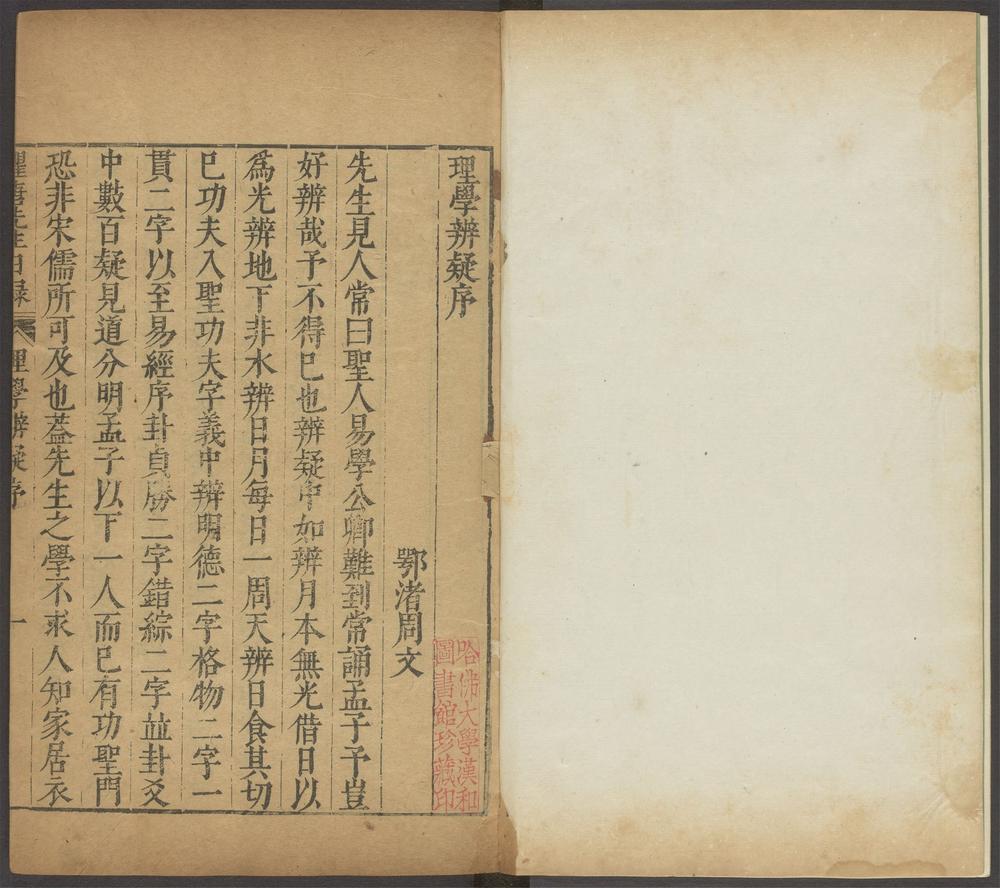 理學辨疑序
鄂渚周文
先生見人常曰聖人易學公卿難到常誦孟子予豈
好辨哉予不得已也辨疑中如辨月本無光借日以
爲光辨地下非水辨日月每日一周天辨日食其切
已功夫入聖功夫字義中辨明德二字格物二字一
貫二字以至易經序卦貞勝二字錯綜二字並卦爻
中數百疑見道分明孟子以下一人而已有功聖門
恐非宋儒所可及也蓋先生之學不求人知家居衣
瞿唐先生日錄 理學辨疑序 一
哈佛大學漢和
圖書館珍藏印